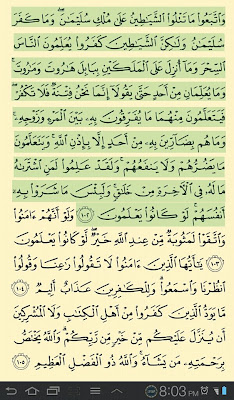 وَٱتَّبَعُوا۟ مَا تَتْلُوا۟ ٱلشَّيَـٰطِينُ عَلَىٰ مُلْكِ سُلَيْمَـٰنَ ۖ وَمَا كَفَرَ
سُلَيْمَـٰنُ وَلَـٰكِنَّ ٱلشَّيَـٰطِينَ كَفَرُوا۟ يُعَلِّمُونَ ٱلنَّاسَ
ٱلسِّحْرَ وَمَآ أُنزِلَ عَلَى ٱلْمَلَكَيْنِ بِبَابِلَ هَـٰرُوتَ وَمَـٰرُوتَ ۚ
وَمَا يُعَلِّمَانِ مِنْ أَحَدٍ حَتَّىٰ يَقُولَآ إِنَّمَا نَحْنُ فِتْنَةٌ فَلَا تَكْفُرْ ۖ
فَيَتَعَلَّمُونَ مِنْهُمَا مَا يُفَرِّقُونَ بِهِۦ بَيْنَ ٱلْمَرْءِ وَزَوْجِهِۦ ۚ
وَمَا هُم بِضَآرِّينَ بِهِۦ مِنْ أَحَدٍ إِلَّا بِإِذْنِ ٱللَّهِ ۚ وَيَتَعَلَّمُونَ
مَا يَضُرُّهُمْ وَلَا يَنفَعُهُمْ ۚ وَلَقَدْ عَلِمُوا۟ لَمَنِ ٱشْتَرَىٰهُ
مَا لَهُۥ فِى ٱلْـَٔاخِرَةِ مِنْ خَلَـٰقٍ ۚ وَلَبِئْسَ مَا شَرَوْا۟ بِهِۦٓ
أَنفُسَهُمْ ۚ لَوْ كَانُوا۟ يَعْلَمُونَ ١٠٢ وَلَوْ أَنَّهُمْ ءَامَنُوا۟
وَٱتَّقَوْا۟ لَمَثُوبَةٌ مِّنْ عِندِ ٱللَّهِ خَيْرٌ ۖ لَّوْ كَانُوا۟ يَعْلَمُونَ
١٠٣ يَـٰٓأَيُّهَا ٱلَّذِينَ ءَامَنُوا۟ لَا تَقُولُوا۟ رَٰعِنَا وَقُولُوا۟
ٱنظُرْنَا وَٱسْمَعُوا۟ ۗ وَلِلْكَـٰفِرِينَ عَذَابٌ أَلِيمٌ ١٠٤
مَّا يَوَدُّ ٱلَّذِينَ كَفَرُوا۟ مِنْ أَهْلِ ٱلْكِتَـٰبِ وَلَا ٱلْمُشْرِكِينَ
أَن يُنَزَّلَ عَلَيْكُم مِّنْ خَيْرٍ مِّن رَّبِّكُمْ ۗ وَٱللَّهُ يَخْتَصُّ
بِرَحْمَتِهِۦ مَن يَشَآءُ ۚ وَٱللَّهُ ذُو ٱلْفَضْلِ ٱلْعَظِيمِ ١٠٥
8:03 PM